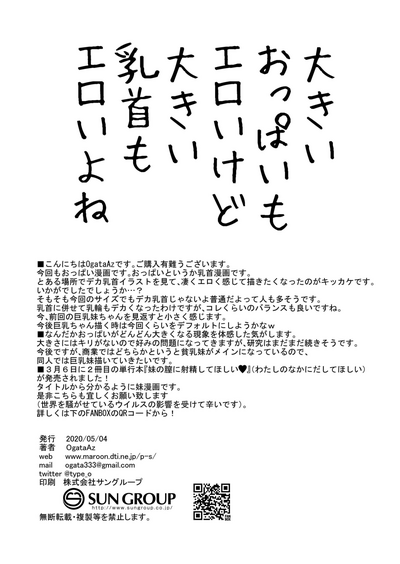 大きい
おっぱいも
エロいけど
大きい
乳首も
エロいよね
■こんにちはOgataAzです。ご購入有難うございます。
今回もおっぱい漫画です。おっぱいというか乳首漫画です。
とある場所でデカ乳首イラストを見て、凄くエロく感じて描きたくなったのがキッカケです。
いかがでしたでしょうか…?
そもそも今回のサイズでもデカ乳首じゃないよ普通だよって人も多そうです。
乳首に併せて乳輪もデカくなったわけですが、コレくらいのバランスも良いですね。
今、前回の巨乳妹ちゃんを見返すと小さく感じます。
今後巨乳ちゃん描く時は今回くらいをデフォルトにしようかなw
■なんだかおっぱいがどんどん大きくなる現象を体感した気がします。
大きさにはキリがないので好みの問題になってきますが、研究はまだまだ続きそうです。
今後ですが、商業ではどちらかというと貧乳妹がメインになっているので、
同人では巨乳妹描いていきたいです。
■3月6日に2冊目の単行本『妹の膣に射精してほしい♥』(わたしのなかにだしてほしい)
が発売されました!
タイトルから分かるように妹漫画です。
是非こちらも宜しくお願い致します
(世界を騒がせているウイルスの影響を受けて辛いです)。
詳しくは下のFANBOXのQRコードから!
発行 2020/05/04
著者 OgataAz
web www.maroon.dti.ne.jp/p-s/
mail ogata333@gmail.com
twitter @type_o
印刷 株式会社サングループ
SUN GROUP
http://www.sungroup.co.jp/
無断転載・複製等を禁止します。